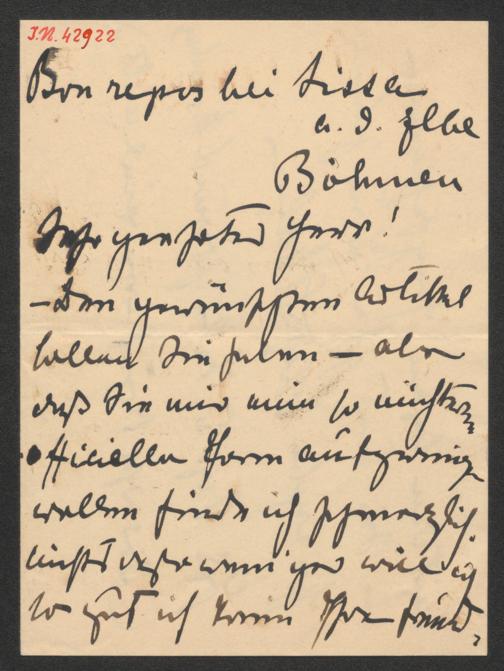 J.N. 42922
Bon repos bei Lissa
a. d. Elbe
Böhmen
Sehr geehrter Herr!
– Den gewünschten Artikel
sollen Sie haben – aber
daß Sie mir eine so nüchtern
officielle Form aufzwingen
wollen finde ich schmerzlich.
Nichts destoweniger will ich
so gut ich kann Ihre freund-